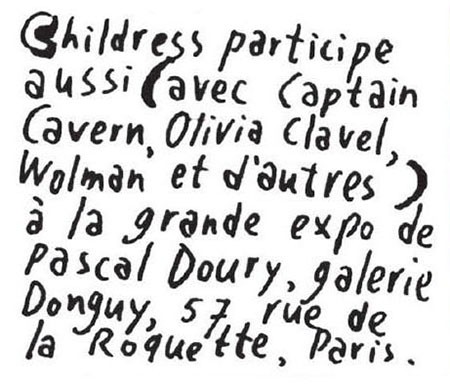 Childress participe
aussi (avec Captain
Cavern, Olivia Clavel,
Wolman et d'autres)
à la grande expo de
Pascal Doury, galerie
Donguy, 57 rue de
la Roquette, Paris.